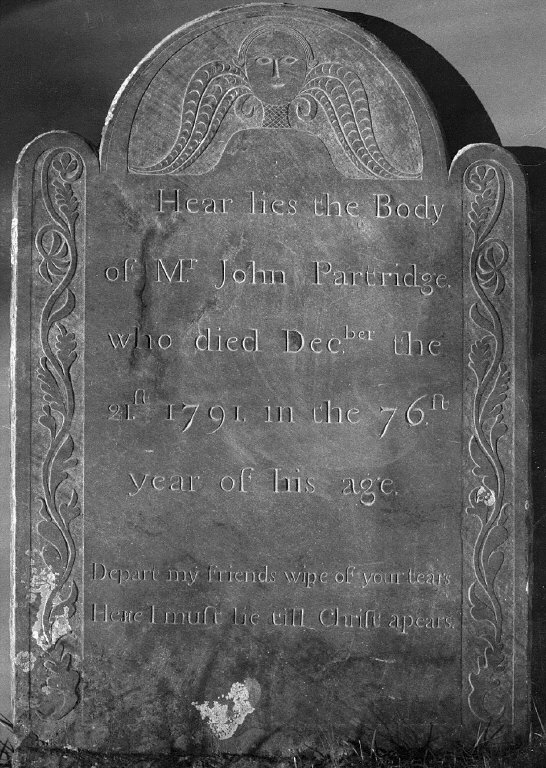 Hear lies the Body
of Mr. John Partridge.
who died Dec.ber the
21.ſt 1791. in the 76.ſt
year of his age.
Depart my friends wipe of your tears
Here I muſt lie till Chriſt apears.